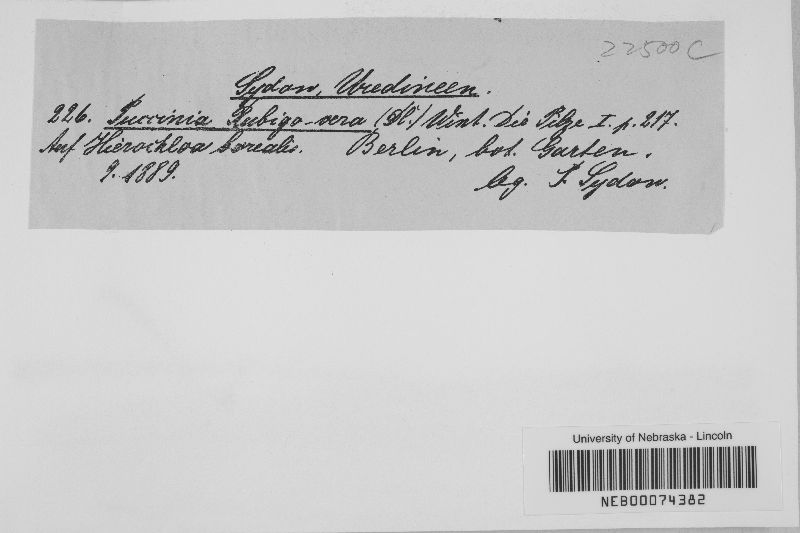 22500C
Sydow, Uredineen.
226. Puccinia Rubigo-vera (DC.) Wint. Die Pilze I. p. 217.
Auf Hierochloa borealis. Berlin, bot. Garten.
9. 1889. lg. P. Sydow.
University of Nebraska - Lincoln
NEB00074382